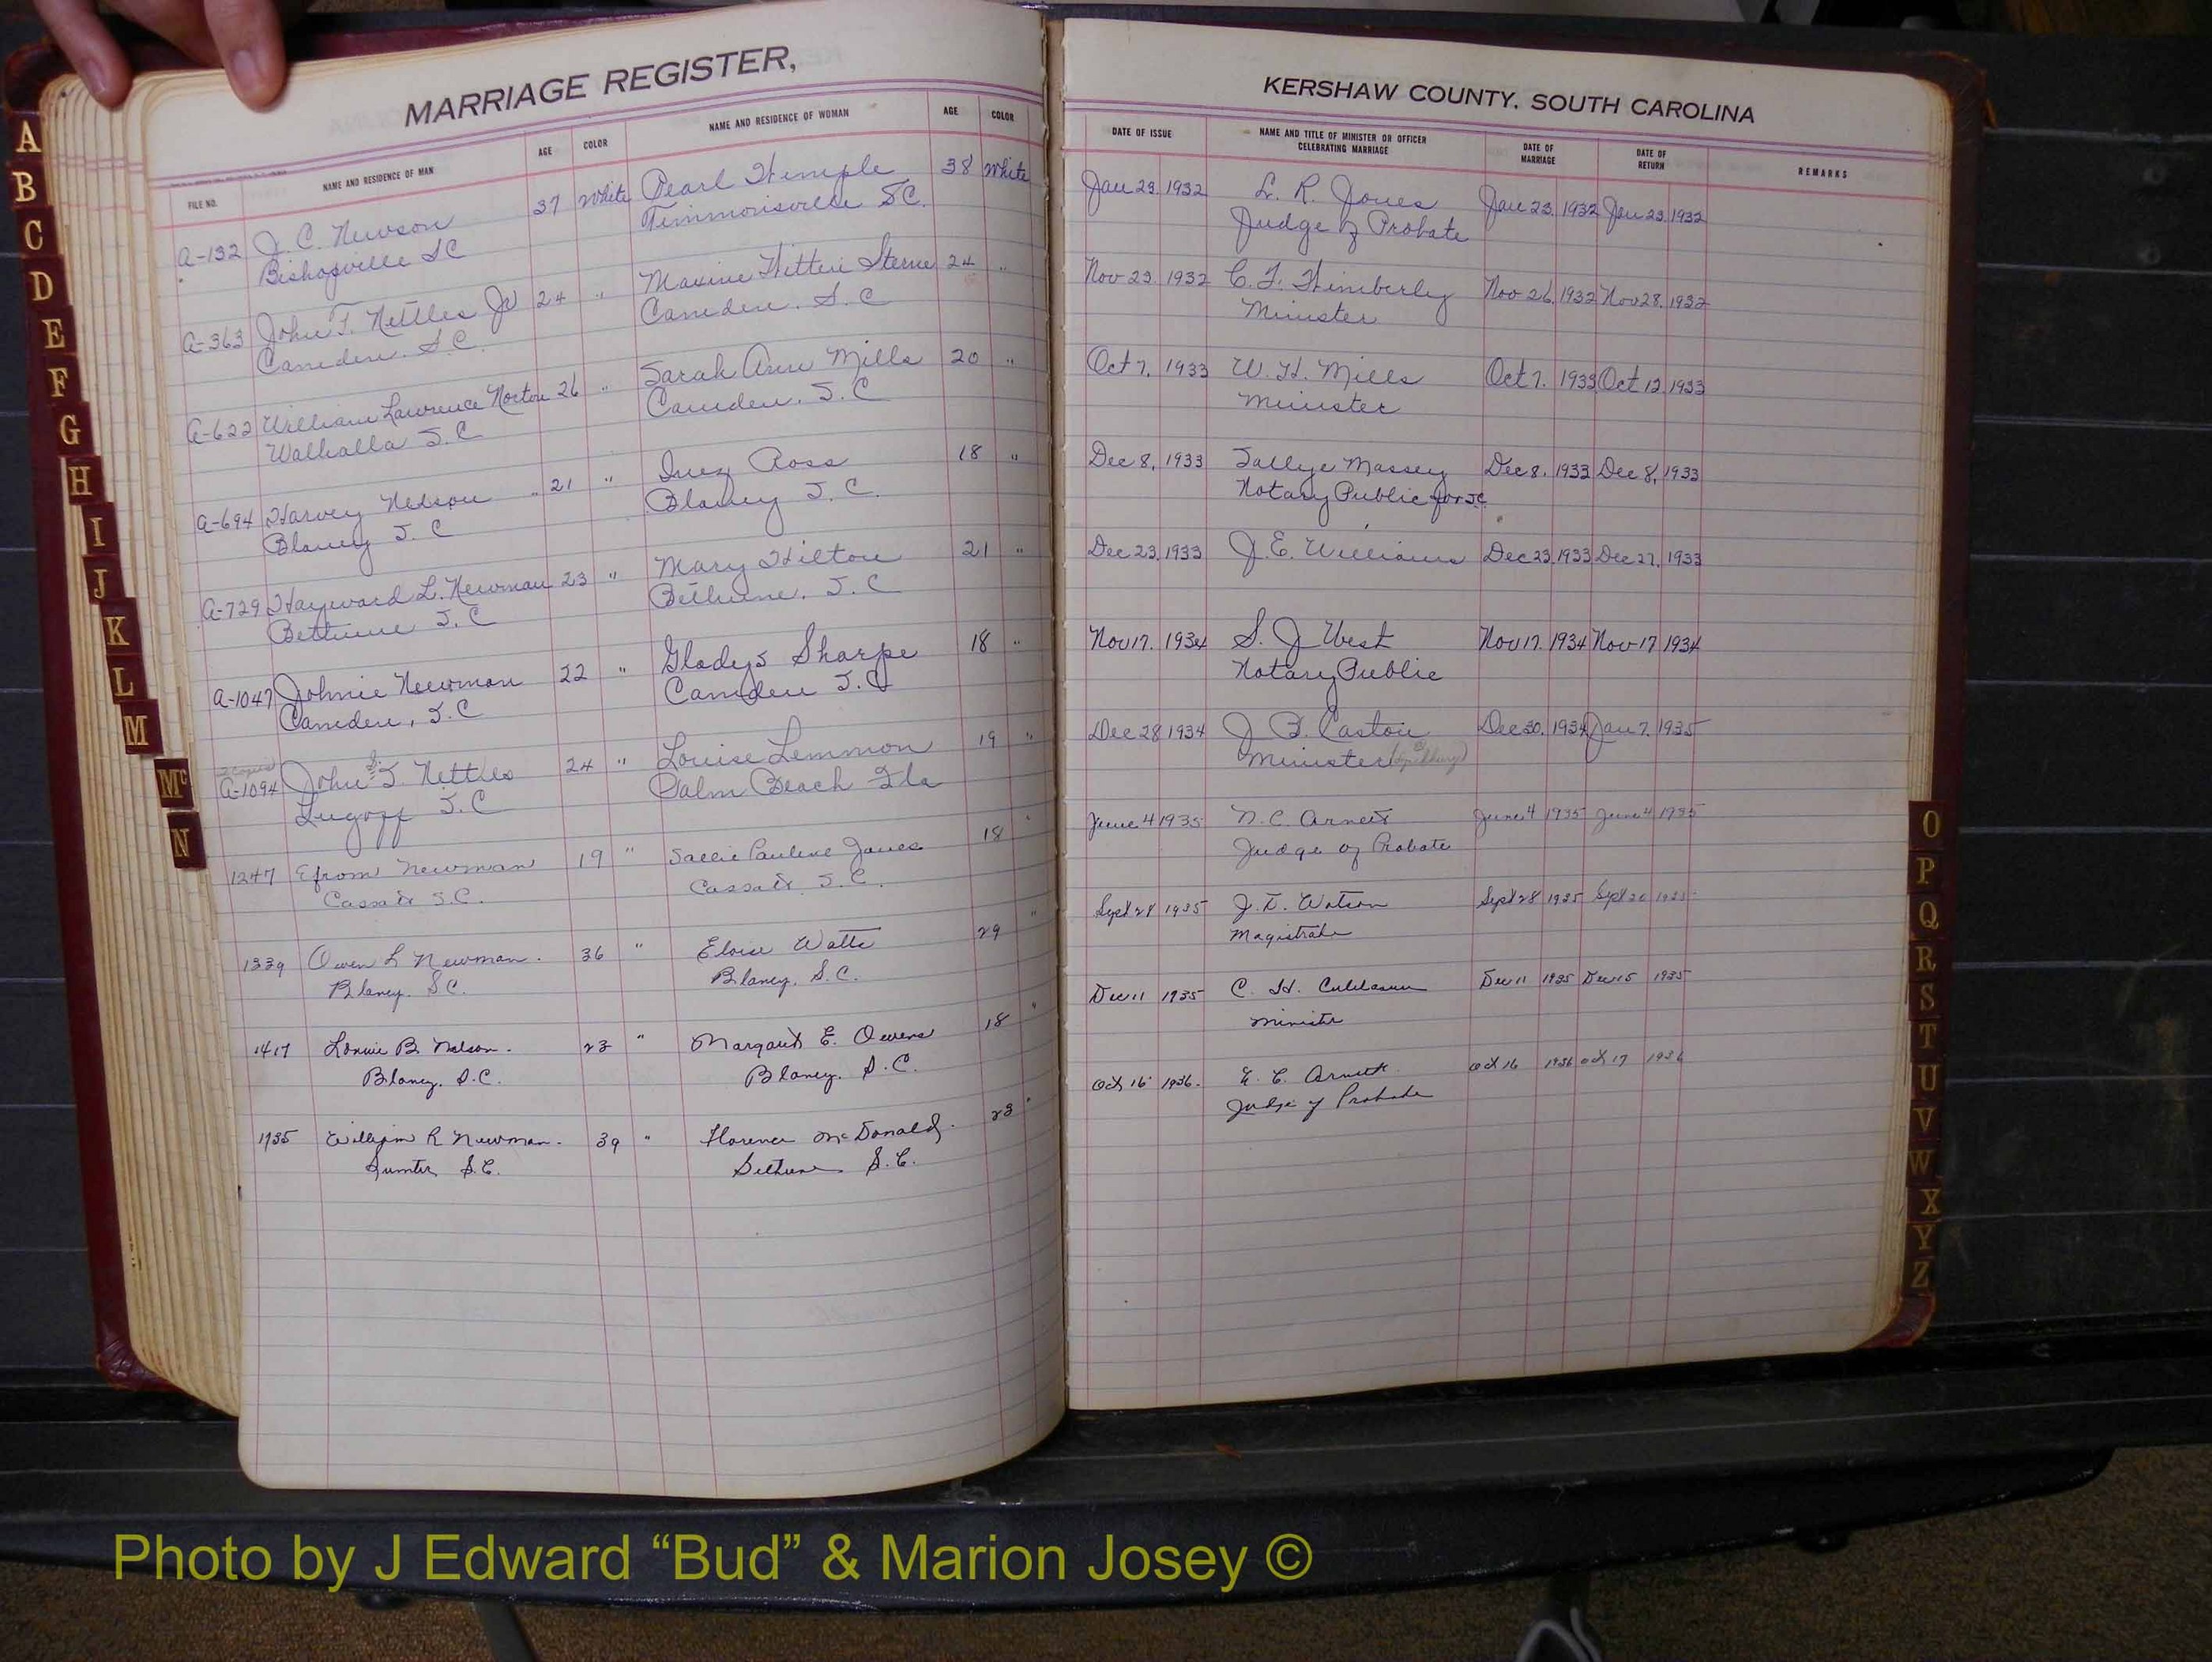 MARRIAGE REGISTER,
FILE NO. NAME AND RESIDENCE OF MAN AGE COLOR NAME AND RESIDENCE OF WOMAN AGE COLOR
A-132 J. C. Newson 37 White Pearl Himple 38 White
Bishopville SC Timmonsville SC.
A-363 John T. Nettles Jr 24 " Maxine Sterne 24 "
Camden. S.C. Camden, S.C
A-622 William Lawrence Norton 26 " Sarah Ann Mills 20 "
Walhalla S.C Camden, S.C
A-694 Harvey Nelson 21 " Inez Ross 18 "
Blaney S.C Blaney S.C.
A-729 Hayward L. Newman 23 " Mary Hilton 21 "
Bethune S.C Bethune, S.C
A-1047 Johnie Newman 22 " Gladys Sharpe 18 "
Camden, S.C Camden S.C
A-1094 John S. Nettles 24 " Louise Lemmon 19 "
Lugoff S.C Palm Beach Fla
1247 Efrom Newman 19 " Sallie Pauline Jones 18 "
Cassatt S.C. Cassatt S.C.
1339 Owen L Newman. 36 " Eloise Watts 29 "
Blaney. S.C. Blaney, S.C.
1417 Lonnie B. Nelson. 23 " Margaret E. Owens 18 "
Blaney, S.C. Blaney. S.C.
1735 William R Newman. 39 " Florence McDonald. 23 "
Sumter S.C. Bethune S.C.
KERSHAW COUNTY, SOUTH CAROLINA
DATE OF ISSUE NAME AND TITLE OF MINISTER OR OFFICER CELEBRATING MARRIAGE DATE OF MARRIAGE DATE OF RETURN REMARKS
Jan 23. 1932 L. R. Jones Jan 23. 1932 Jan 23. 1932
Judge of Probate
Nov 23. 1932 C. F. Wimberly Nov 26, 1932 Nov 28. 1932
Minister
Oct 7, 1933 W. H. Mills Oct 7. 1933 Oct 12 1933
Minister
Dec 8, 1933 Sallye Massey Dec 8. 1933 Dec 8, 1933
Notary Public for S.C.
Dec 23, 1933 J. E. Williams Dec 23, 1933 Dec 27, 1933
Nov 17. 1934 S. J West Nov 17. 1934 Nov 17 1934
Notary Public
Dec 28 1934 J B. Caston Dec 30, 1934 Jan 7, 1935
Minister
June 4 1935 N. C. Arnett June 4 1935 June 4 1935
Judge of Probate
Sept 28 1935 J. D. Watson Sept 28 1935 Sept 1935
Magistrate
Dec 11 1935 C. H. Dec 11 1935 Dec 15 1935
Minister
Oct 16 1936. N. C. Arnett. Oct 16 1936 Oct 17 1936
Judge of Probate
A
B
C
D
E
F
G
H
I
J
K
L
M
Mc
N
O
P
Q
R
S
T
U
V
W
X
Y
Z
Photo by J Edward “Bud” & Marion Josey ©